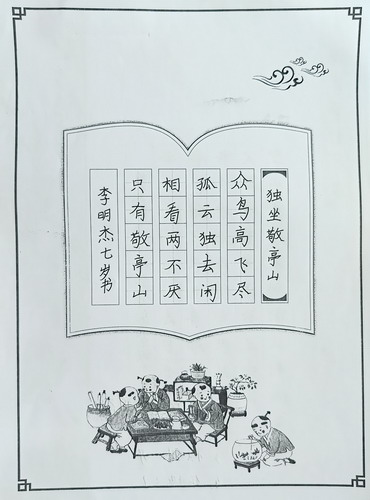 独坐敬亭山
众鸟高飞尽
孤云独去闲
相看两不厌
只有敬亭山
李明杰七岁书